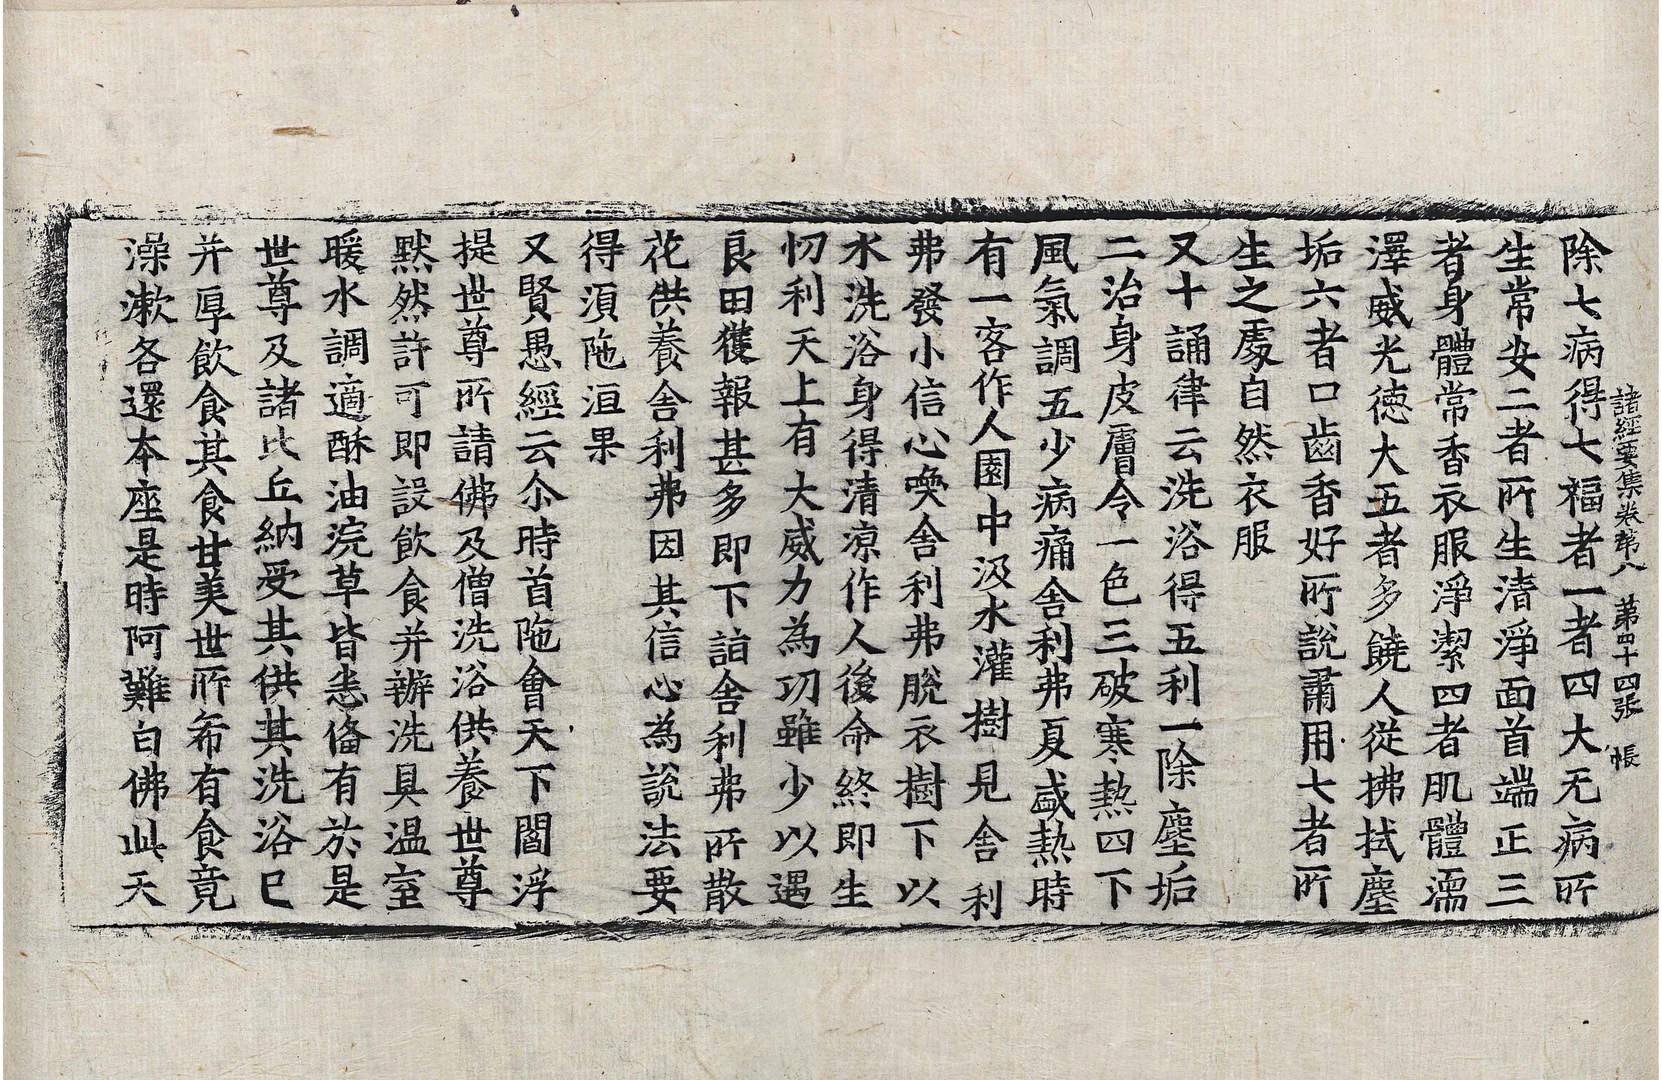 諸經要集卷第八　第四十四張　帳
除七病得七福者一者四大无病所
生常安二者所生清淨面首端正三
者身體常香衣服淨潔四者肌體濡
澤威光徳大五者多饒人從拂拭塵
垢六者口齒香好所說肅用七者所
生之處自然衣服
又十誦律云洗浴得五利一除塵垢
二治身皮膚令一色三破寒熱四下
風氣調五少病痛舍利弗夏盛熱時
有一客作人園中汲水灌樹見舍利
弗發小信心喚舍利弗脫衣樹下以
水洗浴身得清凉作人後命終即生
忉利天上有大威力為功雖少以遇
良田獲報甚多即下詣舍利弗所散
花供養舍利弗因其信心為說法要
得湏陁洹果
又賢愚經云尒時首陁會天下閻浮
提世尊所請佛及僧洗浴供養世尊
默然許可即設飲食并辦洗具温室
暖水調適酥油浣草皆悉俻有於是
世尊及諸比丘納受其供其洗浴已
并厚飲食其食甘美世所希有食竟
澡漱各還本座是時阿難白佛此天